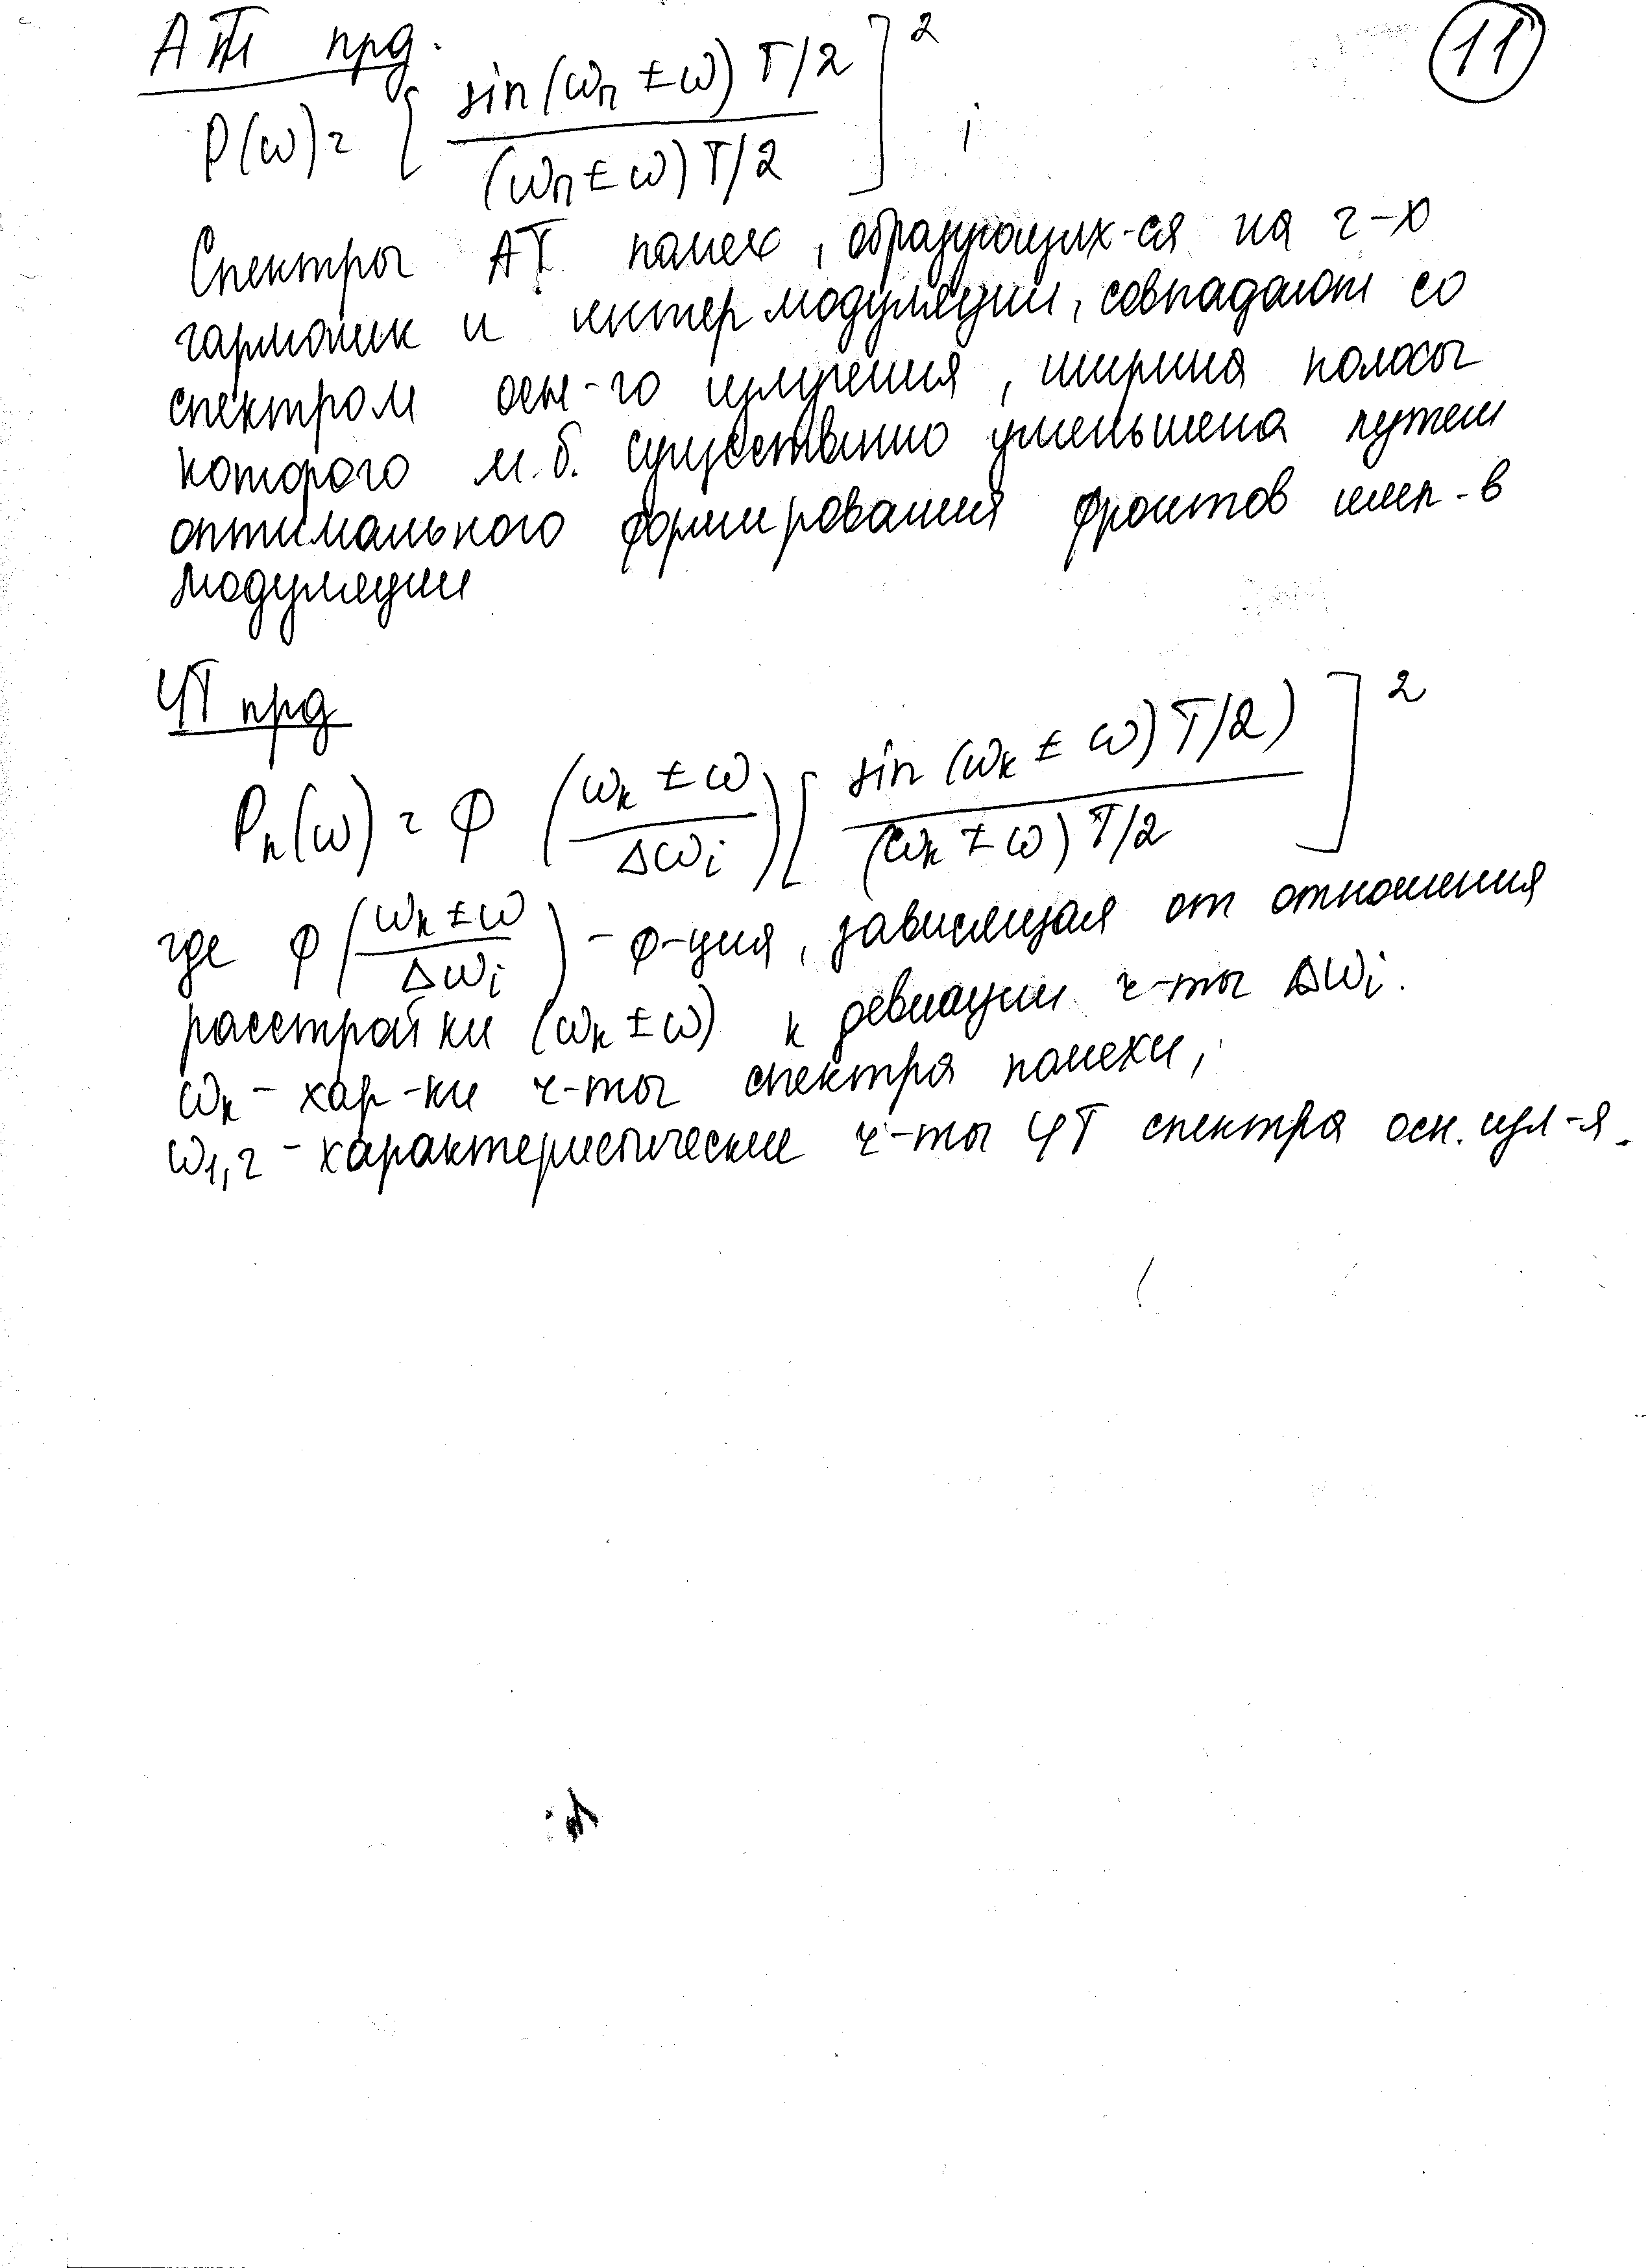 11
АТ прд.
P(ω) = [ sin(ωп ± ω) T/2 / (ωп ± ω) T/2 ]² ;
Спектры АТ помех, образующих-ся на ч-х
гармоник и интермодуляции, совпадают со
спектром осн-го излучения, ширина полосы
которого м.б. существенно уменьшена путем
оптимального формирования фронтов имп-в
модуляции
ЧТ прд
Pп(ω) = φ ( ωк ± ω / Δωi ) [ sin (ωк ± ω) T/2) / (ωк ± ω) T/2 ]²
где φ ( ωк ± ω / Δωi ) - ф-ция, зависящая от отношения
расстройки (ωк ± ω) к девиации ч-ты Δωi.
ωк - хар-ки ч-ты спектра помехи;
ω1,2 - характеристические ч-ты ЧТ спектра осн. изл-я.